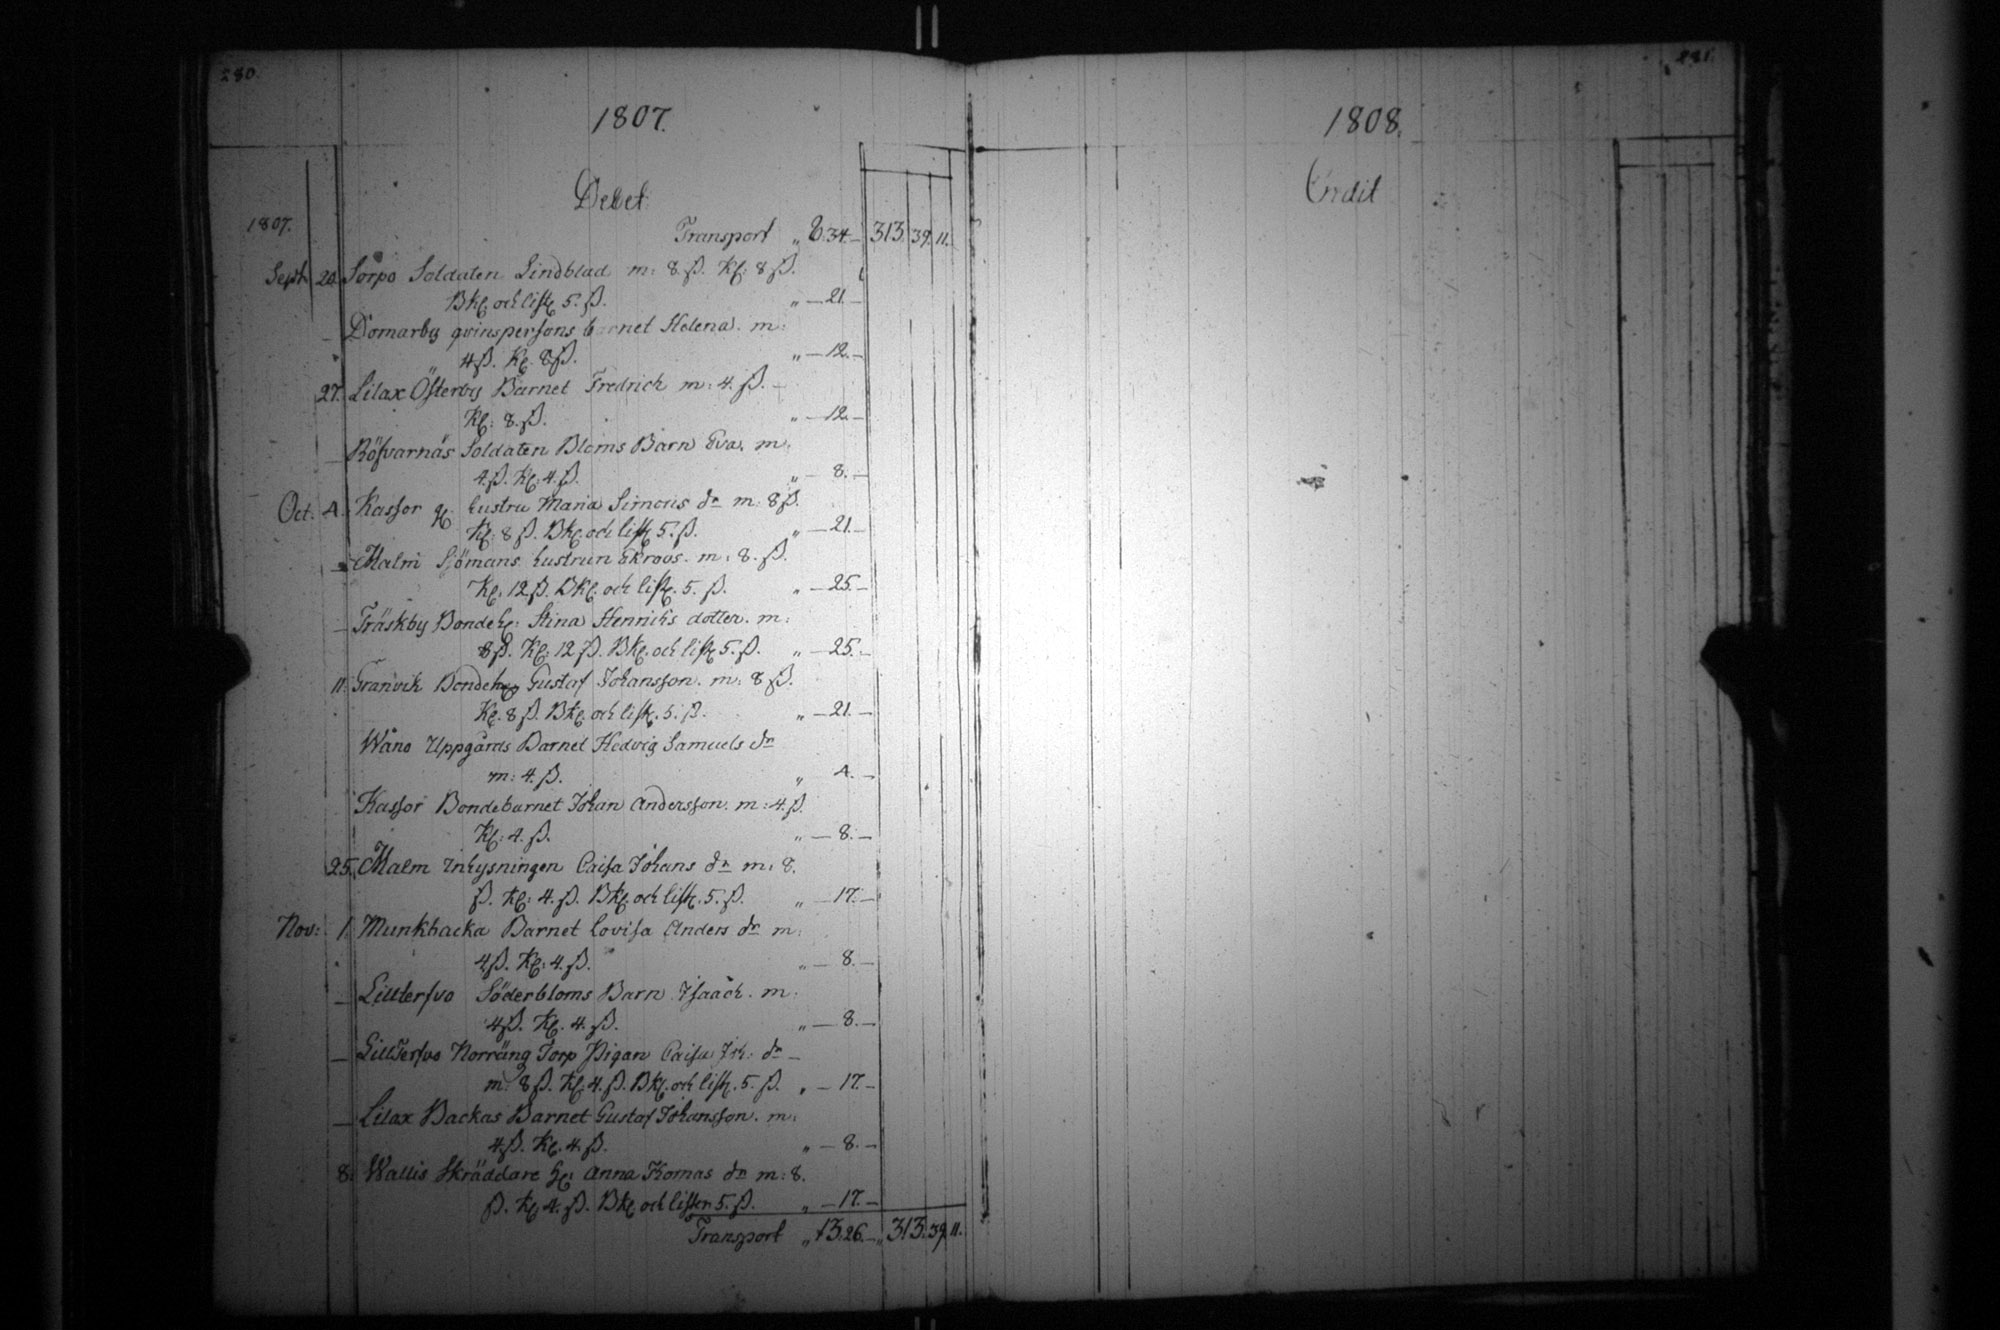 280.
1807.
Debet
1807.
Transport „ 8.34.— 313. 39. 11.
Sept. 20. Sorpo Soldaten Lindblad m: 8. ß. Kl: 8 ß.
Bkl. och listk. 5. ß. „ — 21. —
— Domarby qvinspersons barnet Helena. m:
4 ß. Kl. 8 ß. „ — 12. —
27. Lilax Österby Barnet Fredrich m: 4. ß. —
Kl: 8. ß. „ — 12. —
— Röfvarnäs Soldaten Bloms Barn Eva. m:
4. ß. Kl: 4. ß. „ — 8. —
Oct. 4. Kassor hustru Maria Simons dr m: 8 ß.
Kl: 8 ß. Bkl. och listk. 5. ß. „ — 21. —
— Malm Sjömans hustrun Ekroos. m: 8. ß.
Kl: 12 ß. Bkl. och listk. 5. ß. „ — 25. —
— Träskby Bonde Stina Henrichs dotter. m:
8 ß. Kl: 12 ß. Bkl. och listk. 5. ß. „ — 25. —
11. Granvik Gustaf Johansson. m: 8 ß.
Kl. 8 ß. Bkl. och listk. 5. ß. „ — 21. —
Wåno Uppgårds Barnet Hedvig Samuels dr
m: 4. ß. „ 4. —
Kassor Bondebarnet Johan Andersson. m: 4. ß.
Kl: 4. ß. „ — 8. —
25. Malm Inhysningen Caisa Johans dr m: 8.
ß. Kl: 4. ß. Bkl. och listk. 5. ß. „ — 17. —
Nov: 1. Munkbacka Barnet Lovisa Anders dr m:
4 ß. Kl: 4. ß. „ — 8. —
— Lilltersvo Söderbloms Barn Isaach. m:
4 ß. Kl. 4. ß. „ — 8. —
— LillTersvo Norräng Torp Pigan Caisa Joh: dr —
m: 8 ß. Kl. 4. ß. Bkl. och listk. 5. ß. „ — 17. —
— Lilax Backas Barnet Gustaf Johansson. m:
4. ß. Kl. 4. ß. „ — 8. —
8. Wallis Skräddare Anna Thomas dr m: 8.
ß. Kl. 4. ß. Bkl. och listkn 5. ß. „ — 17. —
Transport „ 13. 26. — „ 313. 39. 11.
281.
1808.
Credit